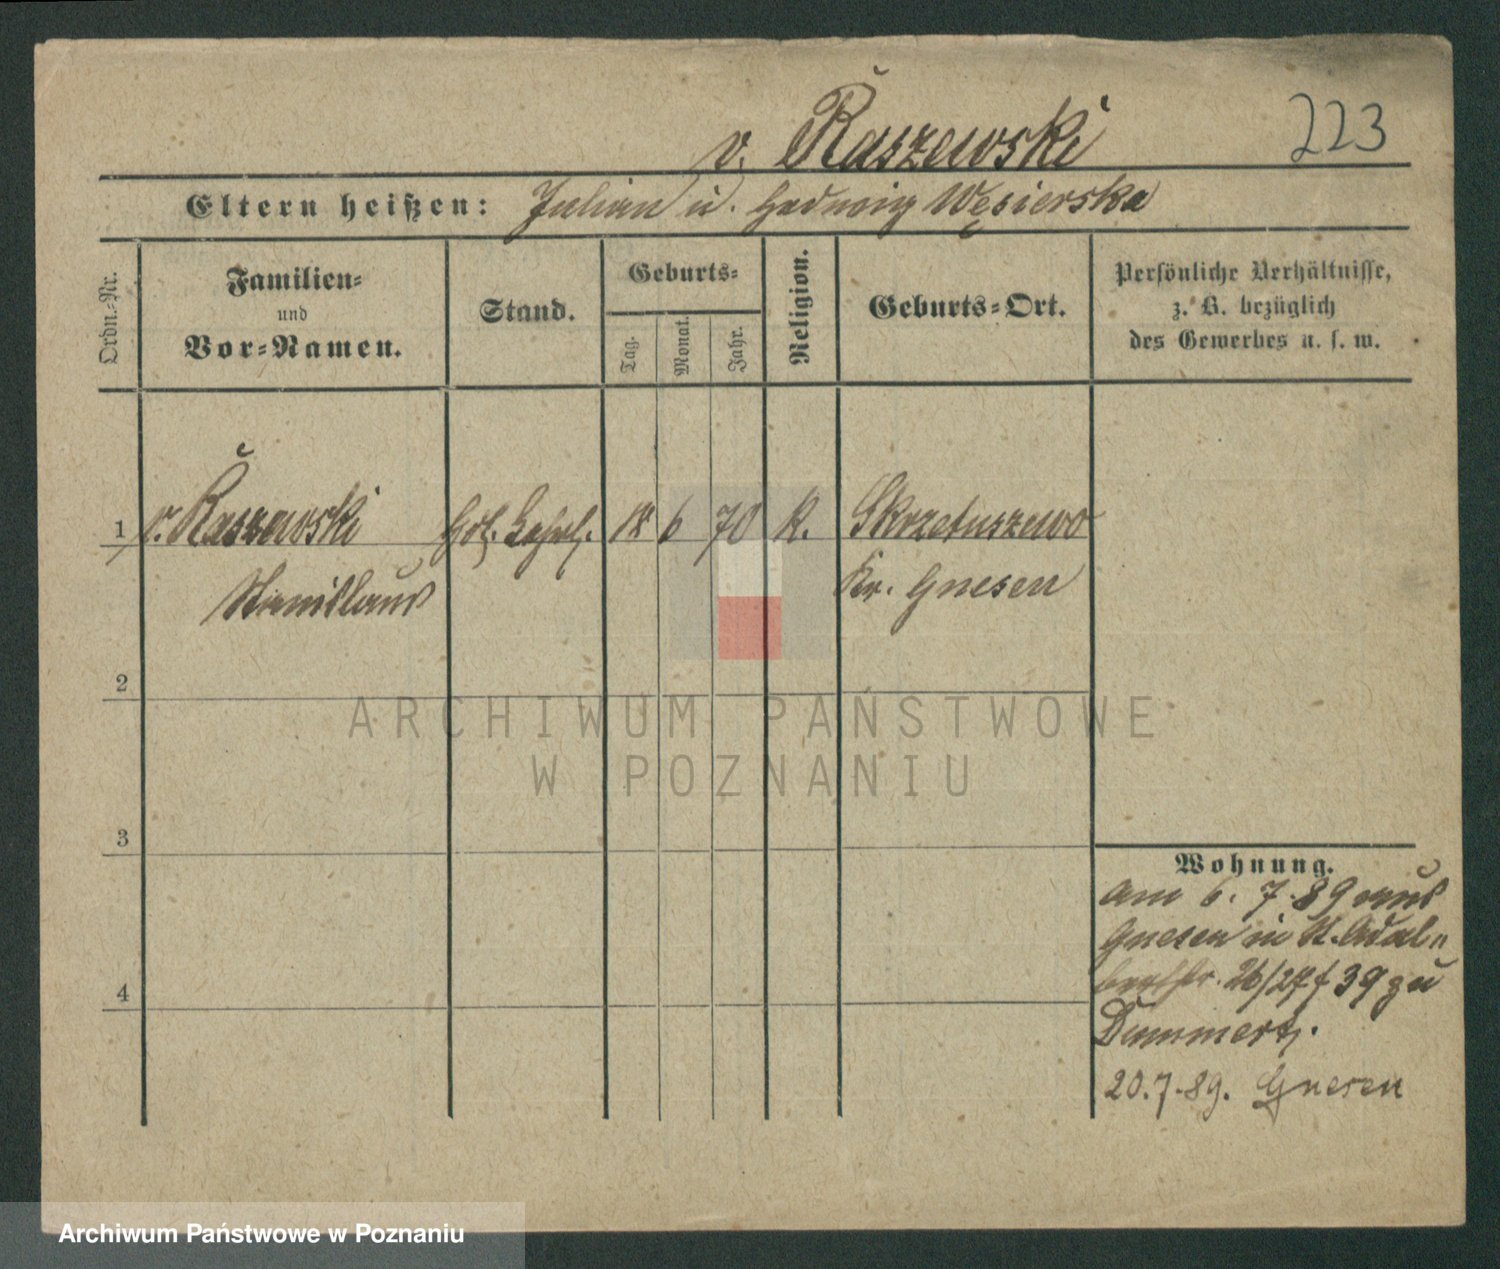 223
v. Raszewski
Eltern heißen: Julian u. Hedwig Węsierska
Ordn.-Nr.
Familien-
und
Vor-Namen.
Stand.
Geburts-
Tag.
Monat.
Jahr.
Religion.
Geburts-Ort.
Persönliche Verhältnisse,
z. B. bezüglich
des Gewerbes u. s. w.
1 v. Raszewski 6 70 K. Skrzetuszewo
Stanislaus Kr. Gnesen
2
3
4
Wohnung.
am 6. 7. 89 aus
Gnesen in St. Adal-
bertstr. 26/27 39 zu
Dummert.
20.7.89. Gnesen
ARCHIWUM PAŃSTWOWE
W POZNANIU
Archiwum Państwowe w Poznaniu